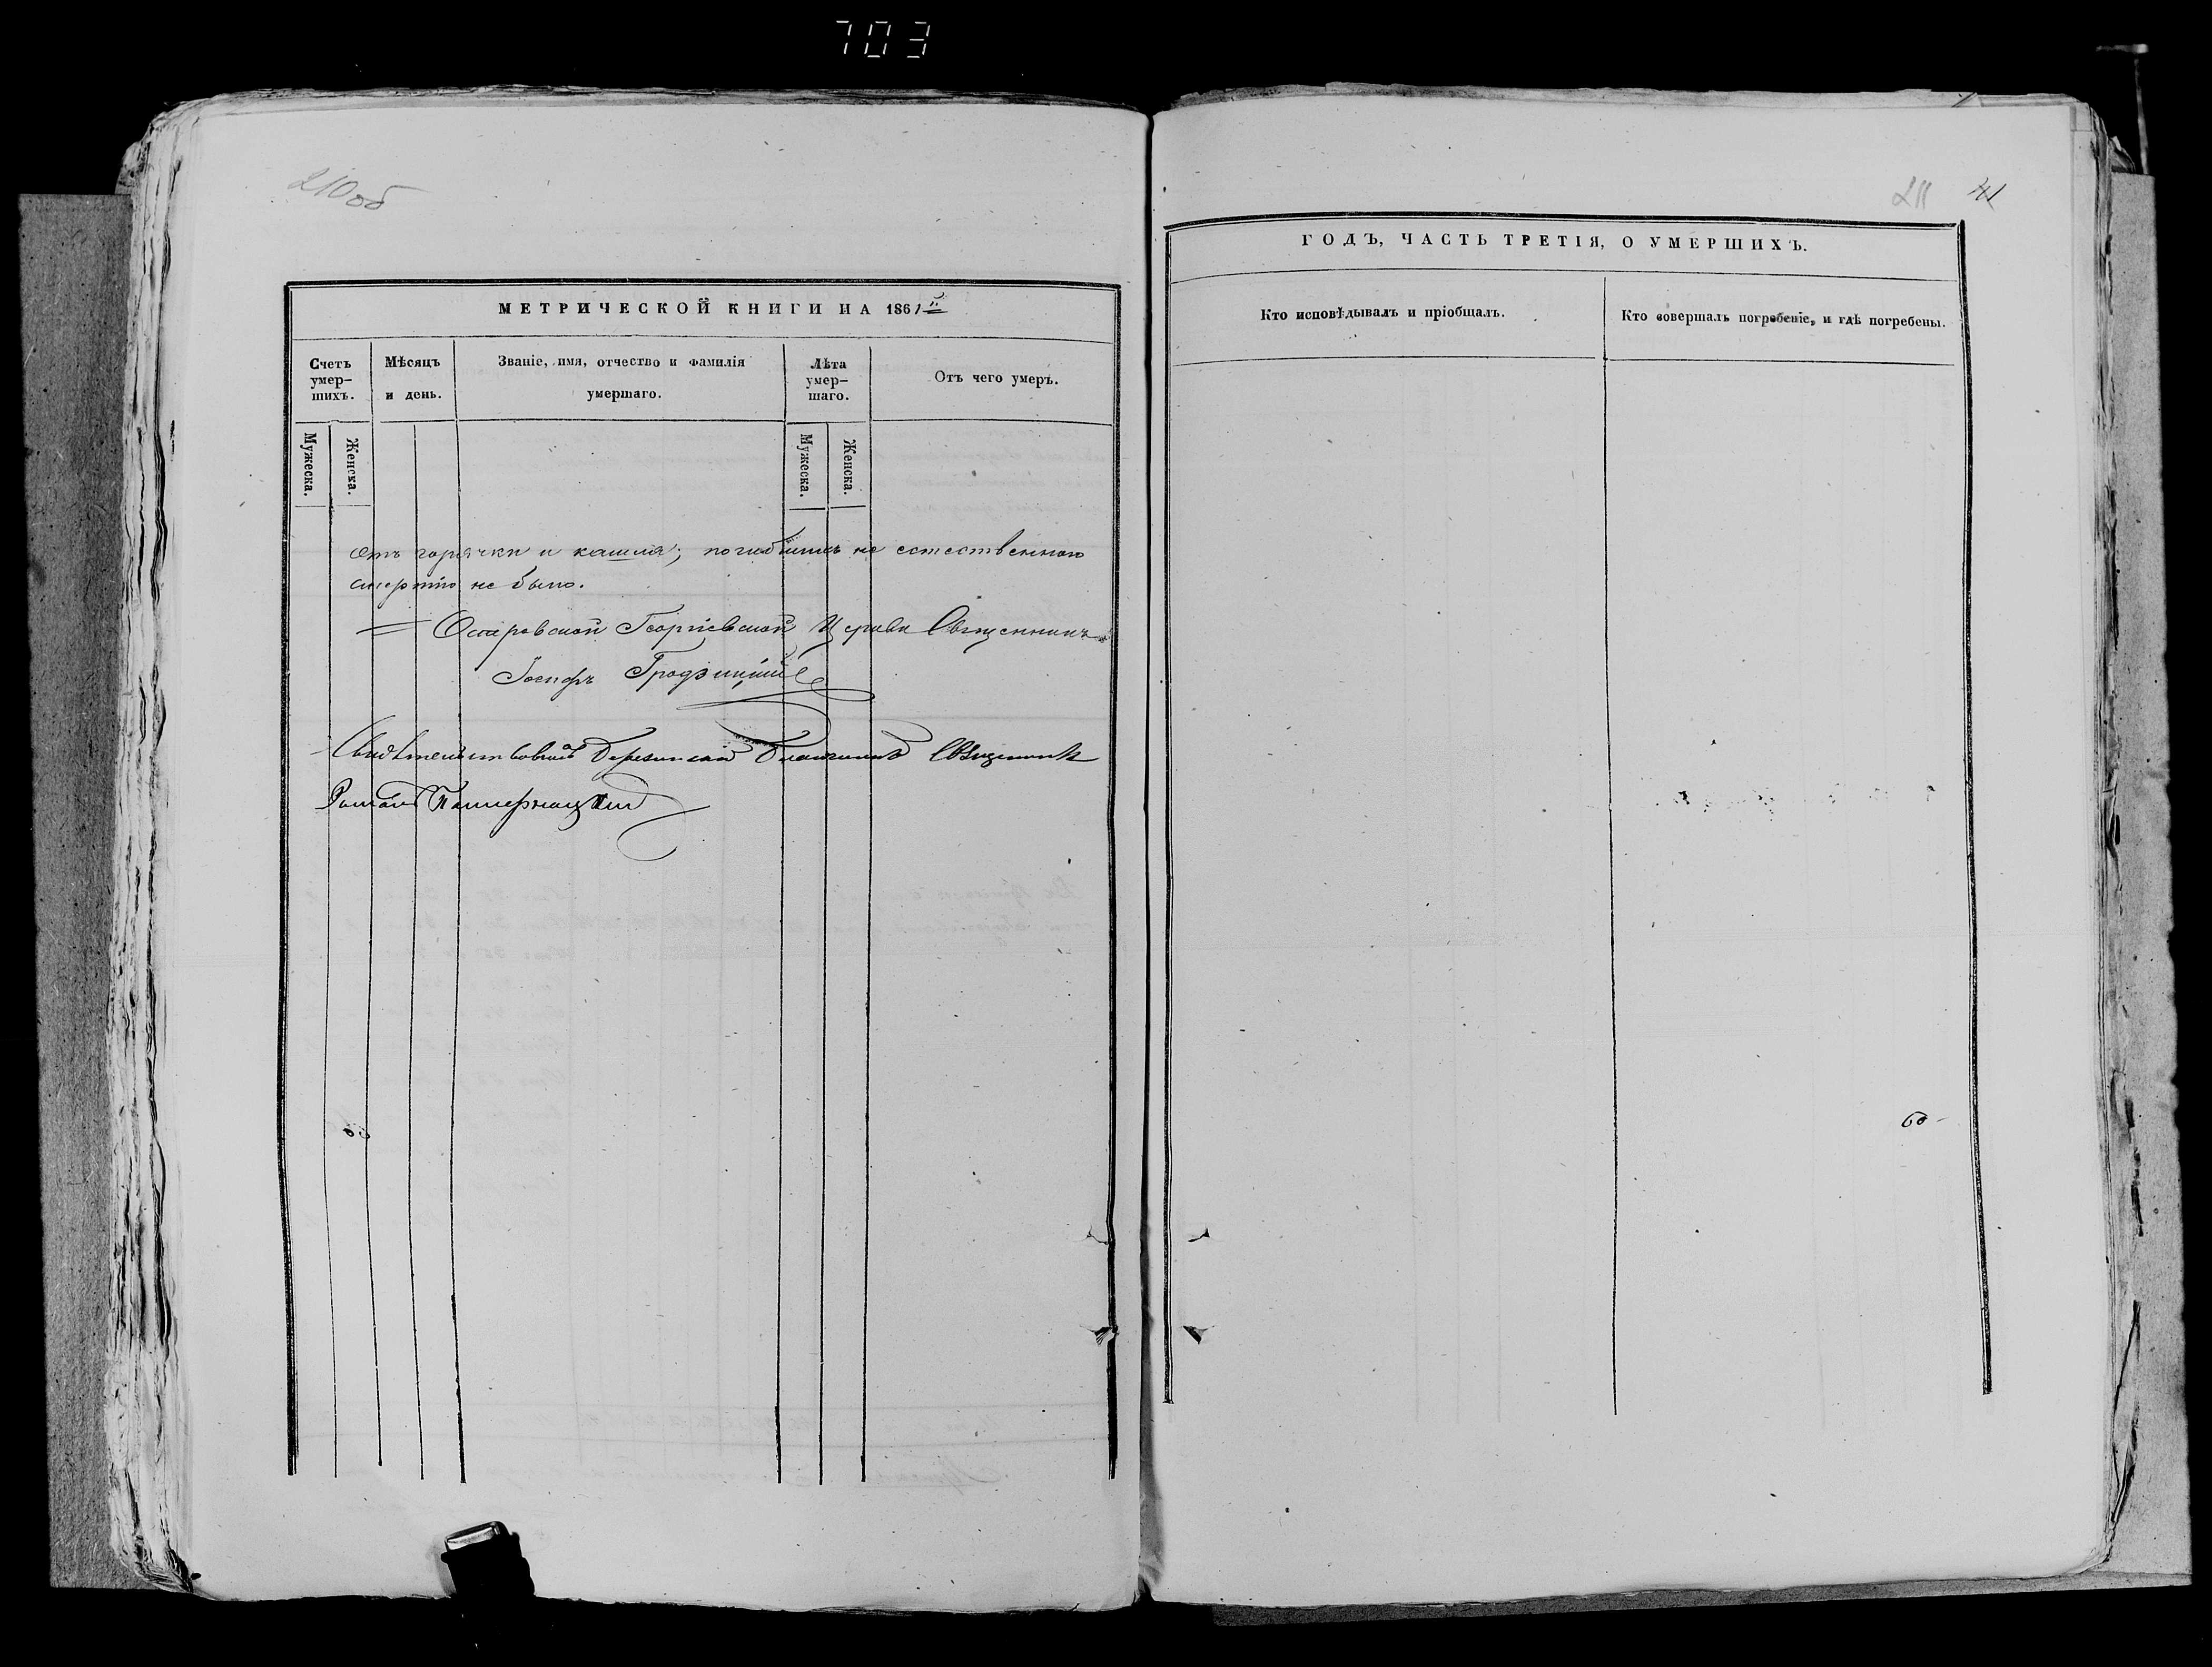 703
210об
МЕТРИЧЕСКОЙ КНИГИ НА 1861й
Счетъ умер- шихъ.
Мѣсяцъ и день.
Званіе, имя, отчество и фамилія умершаго.
Лѣта умер- шаго.
Отъ чего умеръ.
Мужеска.
Женска.
Мужеска.
Женска.
отъ горячки и кашля; погибшихъ не естественною
смертію не было.
Георгіевской Церкви Священникъ
Іосифъ Гродзицкій
Свидѣтельствовалъ Березинскій Благочинный Священникъ
Романъ
211 41
ГОДЪ, ЧАСТЬ ТРЕТІЯ, О УМЕРШИХЪ.
Кто исповѣдывалъ и пріобщалъ.
Кто совершалъ погребеніе, и гдѣ погребены.
60